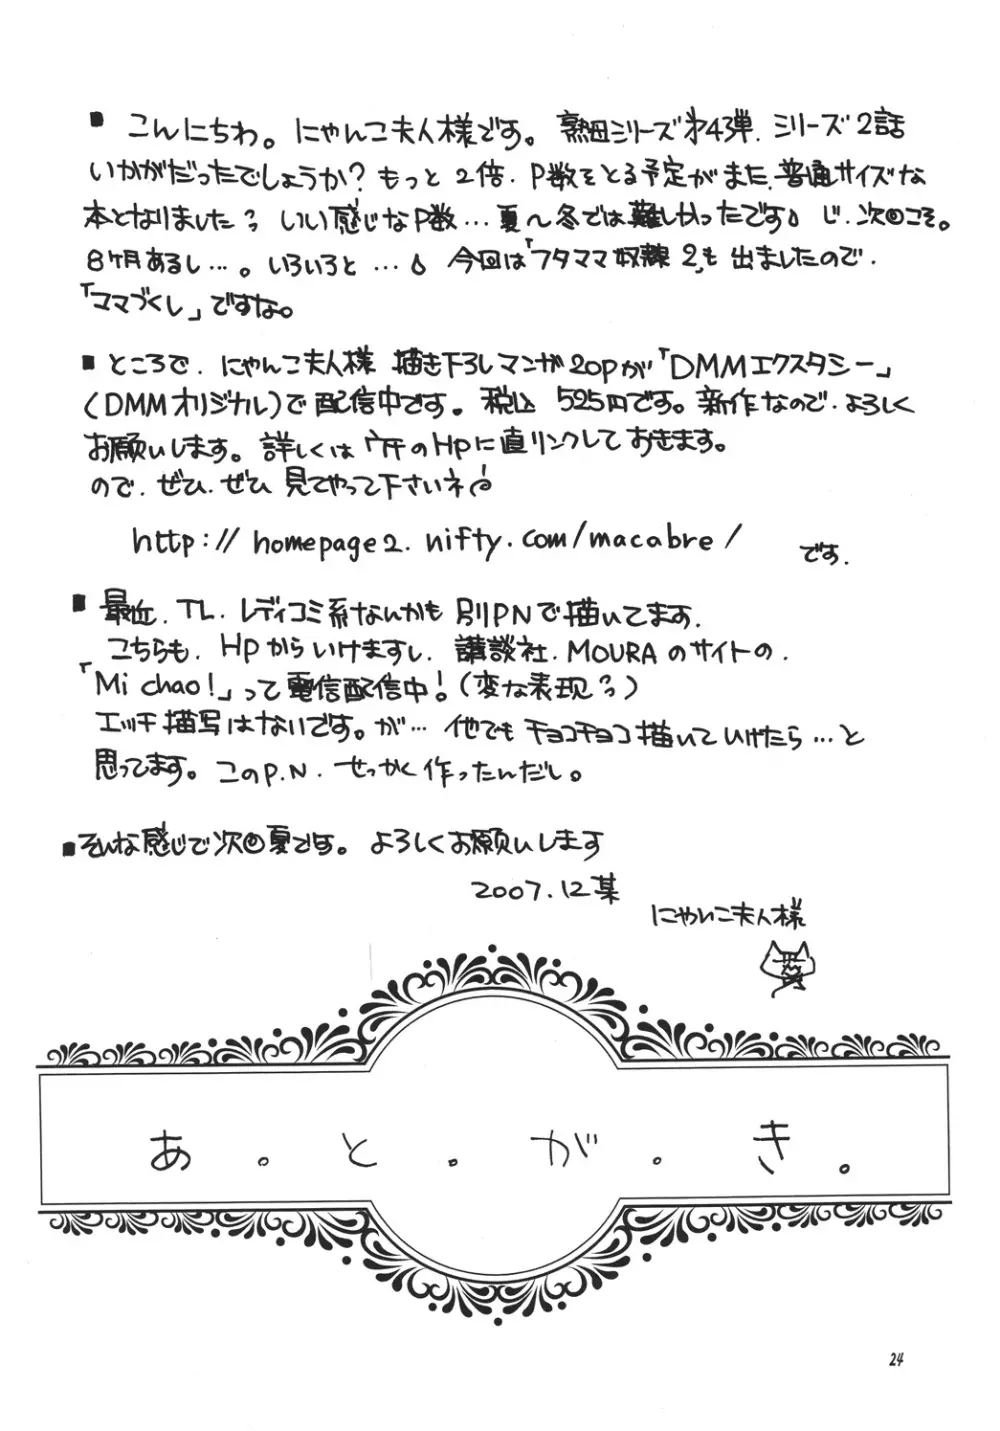 ■ こんにちわ。にゃんこ夫人様です。熟母シリーズ第4弾.シリーズ2話
いかがだったでしょうか?もっと2倍.P数をとる予定がまた.普通サイズな
本となりました? いい感じなP数…夏〜冬では難しかったです じ.次回こそ。
8ヶ月あるし…。いろいろと… 今回は「フタママ奴隷2」も出ましたので.
「ママづくし」ですな。
■ ところで.にゃんこ夫人様 描き下ろしマンガ20pが「DMMエクスタシー」
(DMMオリジナル)で配信中です。税込 525円です。新作なので.よろしく
お願いします。詳しくはウチのHpに直リンクしておきます。
ので.ぜひ.ぜひ見てやって下さいネ
http://homepage2.nifty.com/macabre/ です.
■ 最近.TL.レディコミ系なんかも別PNで描いてます.
こちらも.HPからいけますし.講談社.MOURAのサイトの.
「Mi chao!」って電信配信中!(変な表現?)
エッチ描写はないです。が…他でもチョコチョコ描いていけたら…と
思ってます。このP.N.せっかく作ったんだし。
■ そんな感じで次回夏です。よろしくお願いします
2007.12某
にゃんこ夫人様
あ。と。が。き。
24